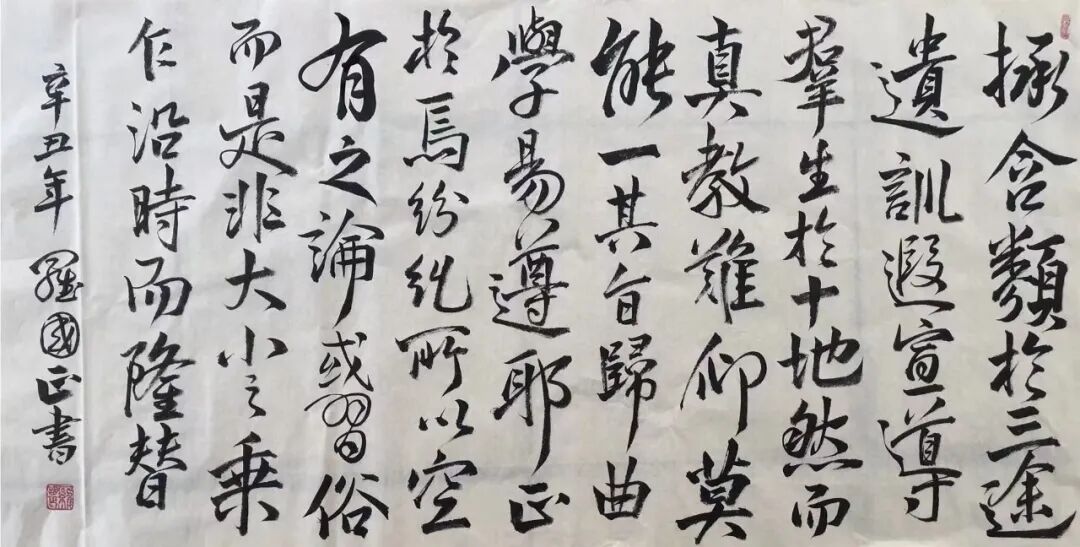 拯含類於三途
遺訓遐宣導
羣生於十地然而
真教難仰莫
能一其旨歸曲
學易遵耶正
於焉紛糺所以空
有之論或習俗
而是非大小之乘
乍沿時而隆替
辛丑年 羅國正書